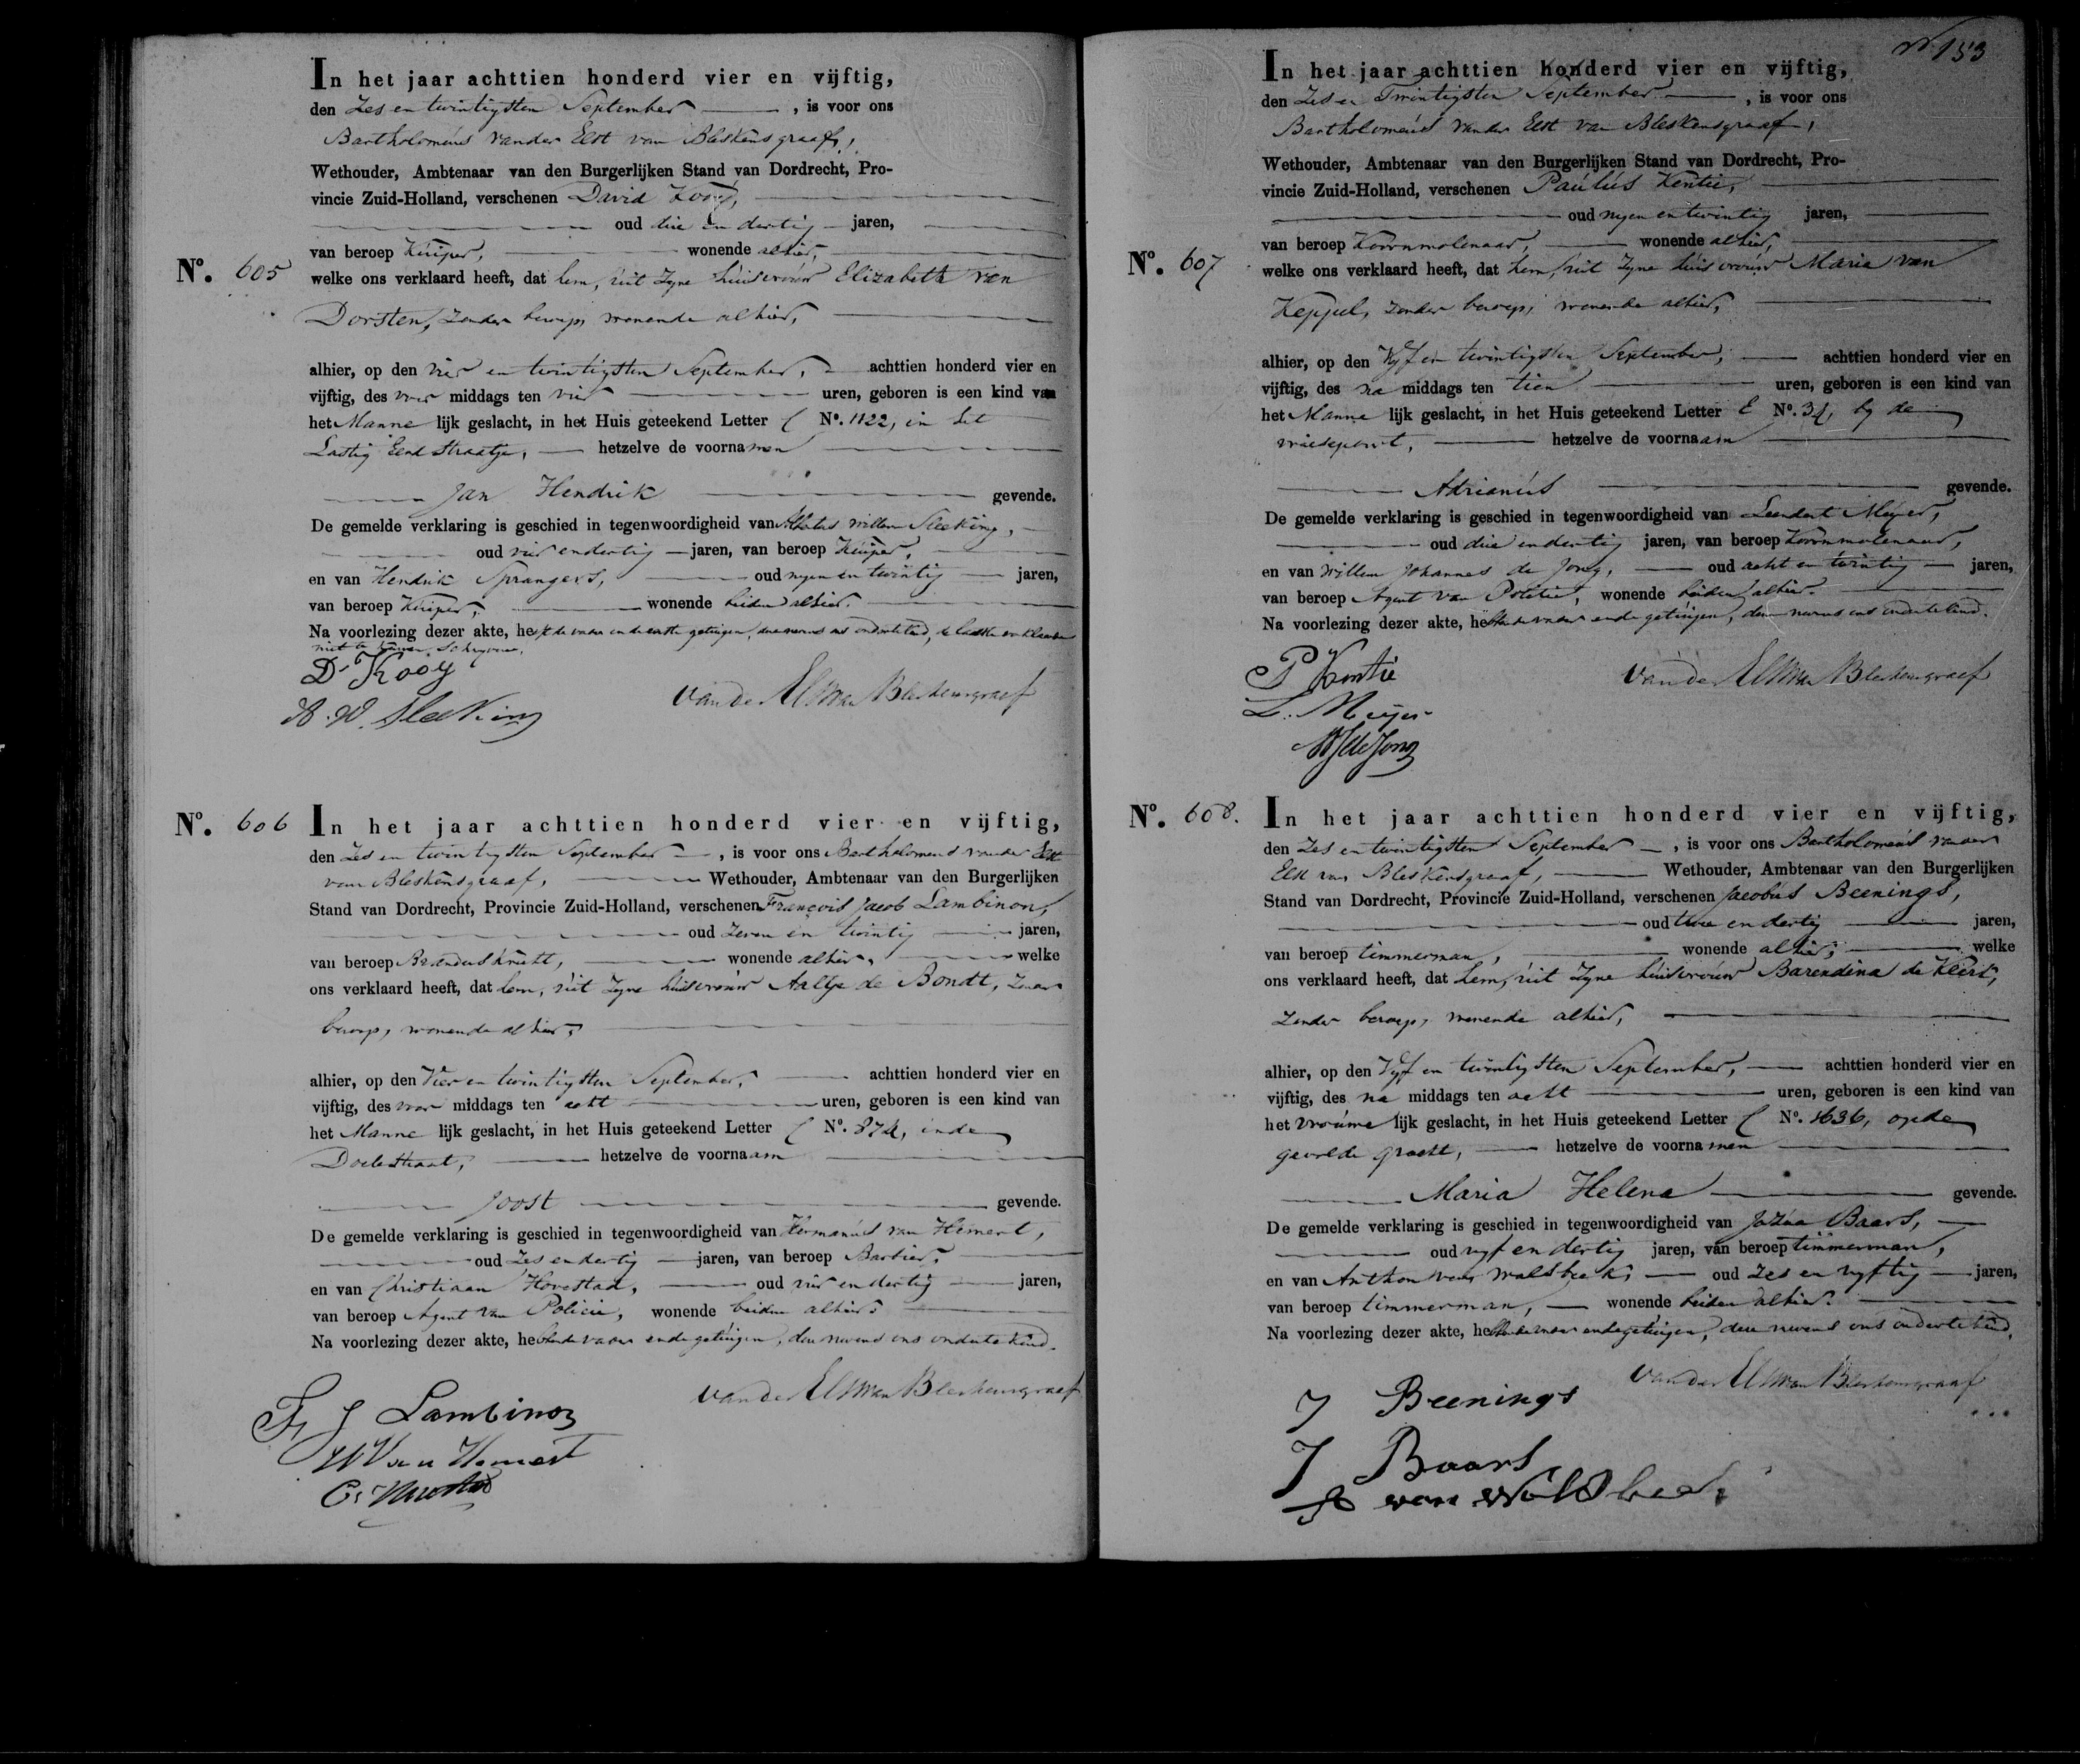 In het jaar achttien honderd vier en vijftig,
den Zes en twintigsten September, is voor ons
Bartholomeus vander Elst van Bleskensgraaf,
Wethouder, Ambtenaar van den Burgerlijken Stand van Dordrecht, Pro-
vincie Zuid-Holland, verschenen David Kooy,
oud drie en dertig jaren,
van beroep Kuiper, wonende alhier,
No. 605 welke ons verklaard heeft, dat hem, uit zyne huisvrouw Elizabeth van
Dorsten, zonder beroep, wonende alhier,
alhier, op den vier en twintigsten September, achttien honderd vier en
vijftig, des voor middags ten vier uren, geboren is een kind van
het Manne lijk geslacht, in het Huis geteekend Letter C No. 1122, in het
Lastig Eind straatje, hetzelve de voornamen
Jan Hendrik gevende.
De gemelde verklaring is geschied in tegenwoordigheid van Willem Sleeking,
oud vier en dertig jaren, van beroep Kuiper,
en van Hendrik Sprangers, oud negen en twintig jaren,
van beroep Kuiper, wonende beiden alhier.
Na voorlezing dezer akte, hebben de vader en de eerste getuigen, dese nevens ons onderteekend, de laatste verklaarde
niet te kunnen schryven.
D. Kooy
A. W. Sleeking
van der Elst van Bleskensgraaf
No. 606 In het jaar achttien honderd vier en vijftig,
den Zes en twintigsten September, is voor ons Bartholomeus vander Elst
van Bleskensgraaf, Wethouder, Ambtenaar van den Burgerlijken
Stand van Dordrecht, Provincie Zuid-Holland, verschenen François Jacob Lambinon,
oud Zeven en twintig jaren,
van beroep Brandersknecht, wonende alhier, welke
ons verklaard heeft, dat hem, uit zyne huisvrouw Aaltje de Bondt, zonder
beroep, wonende alhier,
alhier, op den Vier en twintigsten September, achttien honderd vier en
vijftig, des voor middags ten acht uren, geboren is een kind van
het Manne lijk geslacht, in het Huis geteekend Letter C No. 874, in de
Doelestraat, hetzelve de voornaam
Joost gevende.
De gemelde verklaring is geschied in tegenwoordigheid van Hermanus van Hemert,
oud Zes en dertig jaren, van beroep Barbier,
en van Christiaan Hovestad, oud vier en dertig jaren,
van beroep Agent van Policie, wonende beiden alhier.
Na voorlezing dezer akte, hebben de vader en de getuigen, dese nevens ons onderteekend.
Fs J Lambinon
H Van Hemert
C. Hovestad
van der Elst van Bleskensgraaf
No 153
In het jaar achttien honderd vier en vijftig,
den Zes en Twintigsten September, is voor ons
Bartholomeus vander Elst van Bleskensgraaf,
Wethouder, Ambtenaar van den Burgerlijken Stand van Dordrecht, Pro-
vincie Zuid-Holland, verschenen Paulus Kentie,
oud negen en twintig jaren,
van beroep Koornmolenaar, wonende alhier,
No. 607 welke ons verklaard heeft, dat hem, uit zyne huisvrouw Maria van
Keppel, zonder beroep, wonende alhier,
alhier, op den Vyf en twintigsten September, achttien honderd vier en
vijftig, des na middags ten tien uren, geboren is een kind van
het Manne lijk geslacht, in het Huis geteekend Letter E No. 34, by de
vriesepoort, hetzelve de voornaam
Adrianus gevende.
De gemelde verklaring is geschied in tegenwoordigheid van Leendert Meyer,
oud drie en dertig jaren, van beroep Koornmolenaar,
en van Willem Johannes de Jong, oud acht en twintig jaren,
van beroep Agent van Politie, wonende beiden alhier.
Na voorlezing dezer akte, hebben de vader en de getuigen, dese nevens ons onderteekend.
P Kentie
L. Meijer
WJ de Jong
van der Elst van Bleskensgraaf
No. 608. In het jaar achttien honderd vier en vijftig,
den Zes en twintigsten September, is voor ons Bartholomeus vander
Elst van Bleskensgraaf, Wethouder, Ambtenaar van den Burgerlijken
Stand van Dordrecht, Provincie Zuid-Holland, verschenen Jacobus Beenings,
oud twee en dertig jaren,
van beroep timmerman, wonende alhier, welke
ons verklaard heeft, dat hem, uit zyne huisvrouw Barendina de Klerk,
zonder beroep, wonende alhier,
alhier, op den Vyf en twintigsten September, achttien honderd vier en
vijftig, des na middags ten acht uren, geboren is een kind van
het vrouwe lijk geslacht, in het Huis geteekend Letter C No. 1636, op de
gevulde gracht, hetzelve de voornamen
Maria Helena gevende.
De gemelde verklaring is geschied in tegenwoordigheid van Baars,
oud vyf en dertig jaren, van beroep timmerman,
en van Anthon van Walsbeek, oud Zes en vyftig jaren,
van beroep timmerman, wonende beiden alhier.
Na voorlezing dezer akte, hebben de vader en de getuigen, dese nevens ons onderteekend.
J Beenings
J Baars
A van Walsbeek
van der Elst van Bleskensgraaf